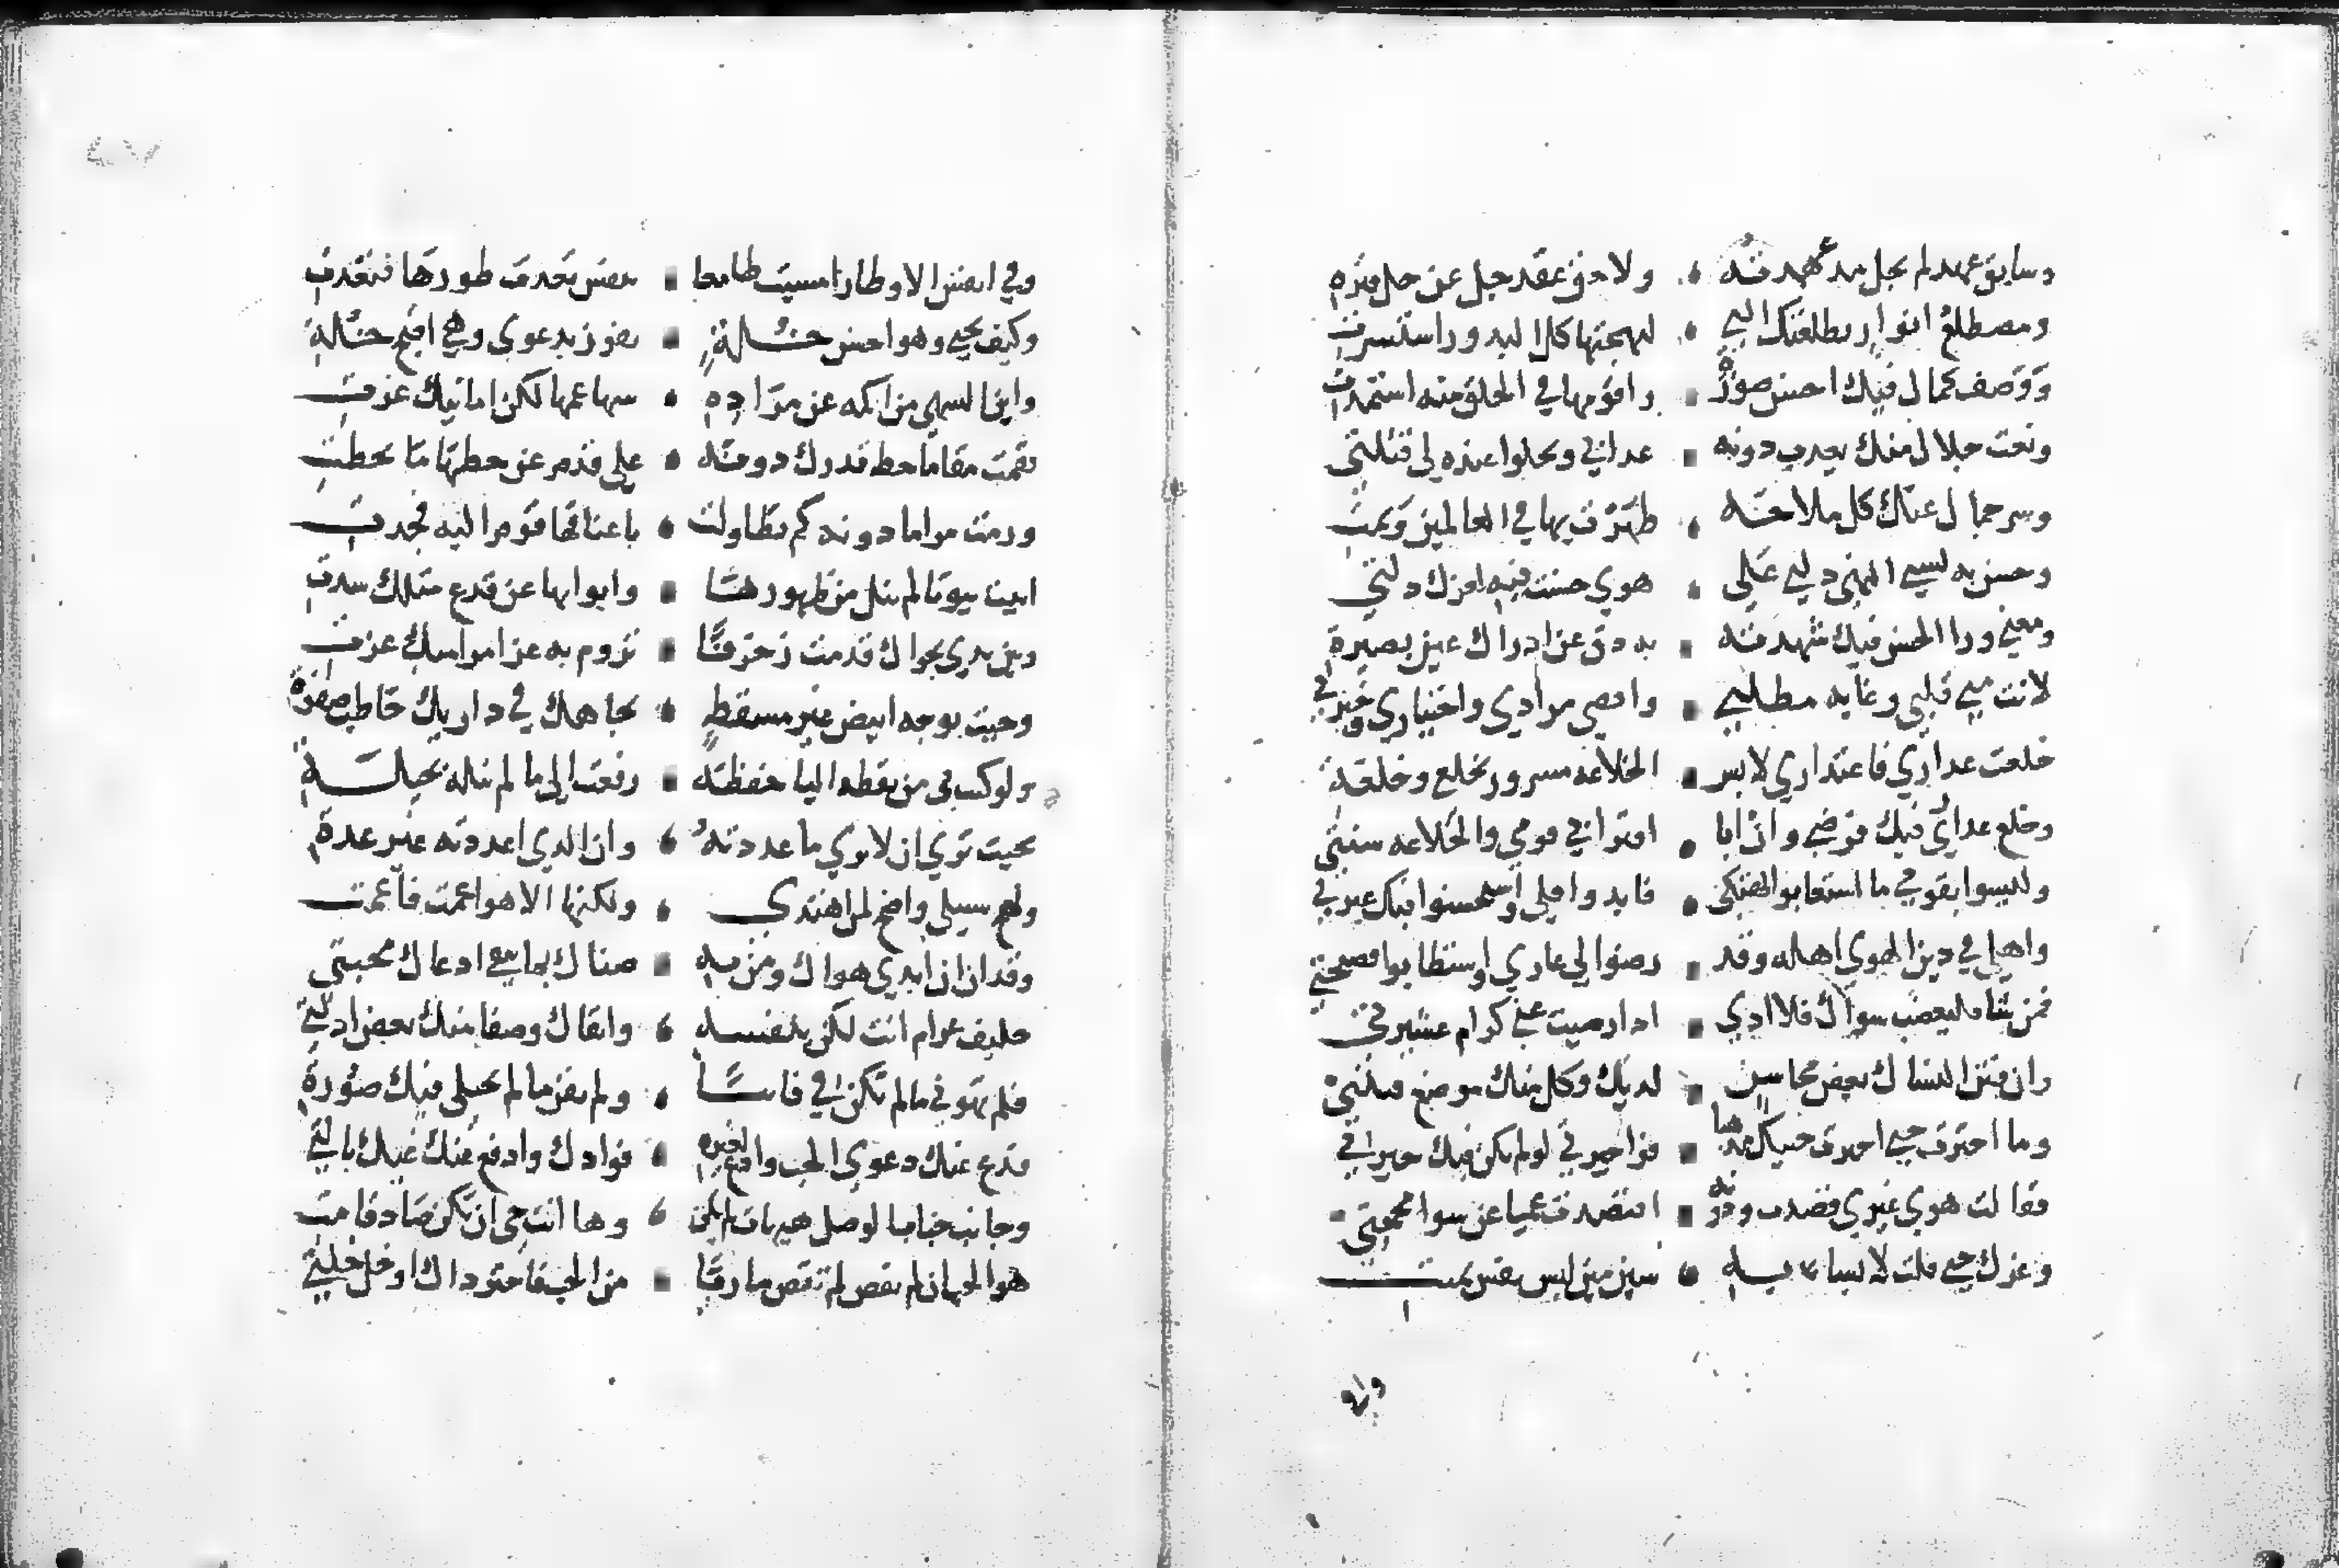 وسابق عهد لم يحل مد عهدته ولا حق عقد جل عن حل فتره
ومطلع انوار بطلعتك التي لبهجتها كل البدور استسرت
ووصف كمال فيك احسن صورة واقومها في الخلق منه استمدت
ونعت جلال منك يعدب دونه عدابي وتحلوا عنده لي قتلتي
وسر جمال عنك كل ملاحة ظهرت بها في العالمين وتمت
وحسن به تسبي النهي دلني علي هوي حسنت فيه لعزك دلتي
ومعني ورا الحسن فيك شهدته به دق عن ادراك عين بصيرة
لانت مني قلبي وغاية مطلبي واقصي مرادي واختياري وخيرتي
خلعت عداري فاعتداري لابس الخلاعه مسرور بخلع وخلعة
وخلع عداري فيك فرضي وان ابا اقترابي قومي والخلاعه سنتي
وليسوا بقومي ما استعابوا تهتكي فابدوا قلي واستحسنوا فيك عبرتي
واهلي في دين الهوي اهله وقد رضوا لي عاري واستطابوا فضيحتي
فمن شا فليغضب سواك فلا ادي ادا رضيت عني كرام عشيرتي
وان فتن النساك بعض محاسن لديك وكل منك موضع فتنتي
وما احترت حتي اخترت حبيك مدهبا فواحيرتي لو لم تكن فيك حيرتي
فقالت هوي غيري قصدت ودونه اقتصدت عميا عن سوا محجتي
وغرك حتي قلت لابسا به شين مين لبس نفس تمنت
وفي
وفي انفس الاوطار امسيت طامعا بنفس تعدت طورها فتعدت
وكيف بحبي وهو احسن خلة تفوز بدعوي وهي اقبح خلة
واين السهي من اكمه عن مراده سها عمها لكن امانيك غرت
فقمت مقاما حط قدرك دونه علي قدم عن حظها ما تخطت
ورمت مراما دونه كم تطاولت باعناقها قوم اليه فجدت
اتيت بيوتا لم تنل من ظهورها وابوابها عن قرع مثلك سدت
وبين يدي نجواك قدمت زخرفا تروم به عزا مراميه عزت
وجيت بوجه ابيض غير مسقط لجاهك في داريك خاطب صفوتي
ولو كنت بي من نقطه البا خفضة رفعت الي ما لم تنله بحيلة
بحيث تري ان لا تري ما عددته وان الدي اعددته غير عدة
ونهج سبيلي واضح لمن اهتدي ولكنها الاهوا عمت فاعمت
وقد ان ان ابدي هواك ومن به ضناك بما ينفي ادعاك محبتي
حليف غرام انت لكن بنفسه وابقاك وصفا منك بعض ادلتي
فلم تهوني ما لم تكن في فانيا ولم تفن ما لم تجتلي فيك صورتي
فدع عنك دعوي الحب وادع لغيره فوادك وادفع عنك غيك بالتي
وجانب جناب الوصل هيهات لم يكن وها انت حي ان تكن صادقا مت
هو الحب ان لم تقض لم تقض ماربا من الحب فاختر داك او خل خلتي